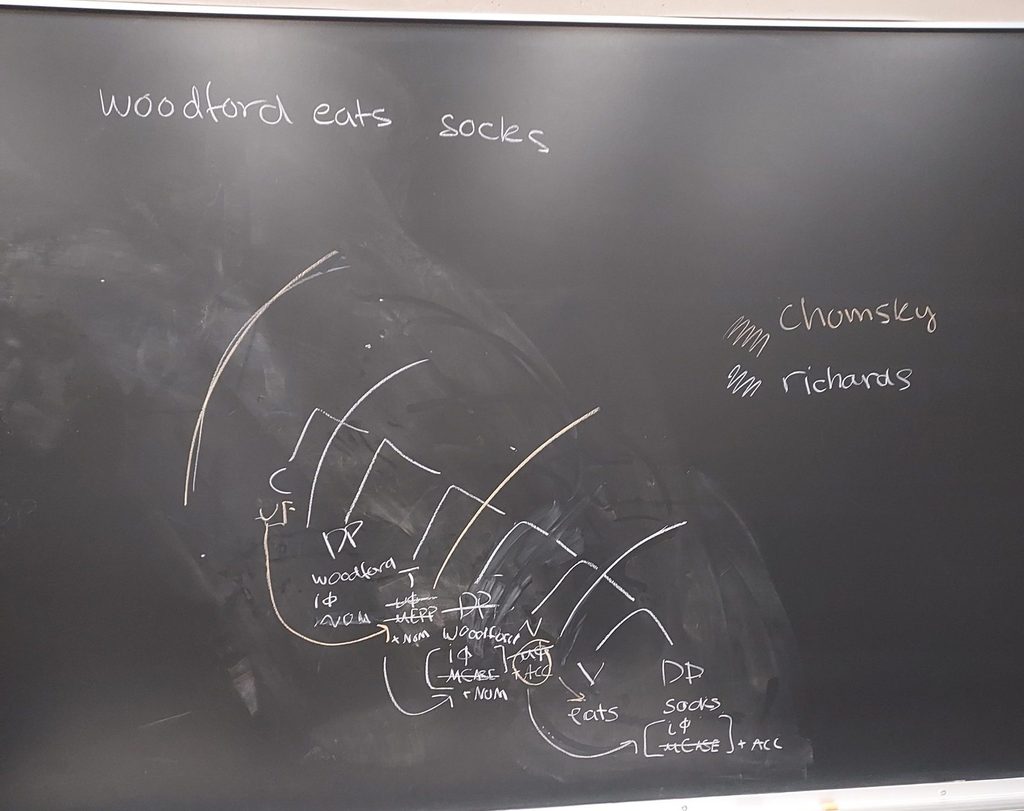 woodford eats socks
chomsky
richards
C
uF
DP
woodford
iφ
NOM
T
uφ
uEPP
+NOM
DP
woodford
[iφ
uCASE]
+NOM
V
uφ
+ACC
V
eats
DP
socks
[iφ
uCASE] +ACC